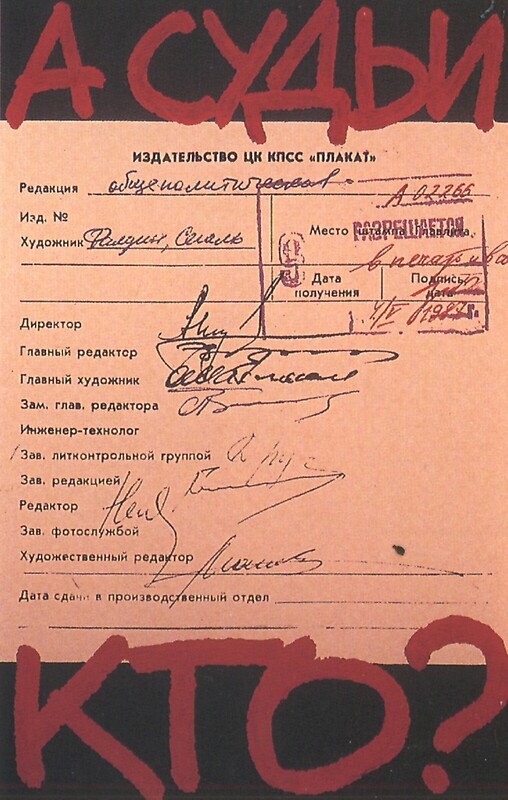 А СУДЬИ
ИЗДАТЕЛЬСТВО ЦК КПСС «ПЛАКАТ»
Редакция общеполитическая
А 02266
Изд. №
Место штампа Главлита
РАЗРЕШАЕТСЯ
Художник Фалдин, Сегаль
в печать
Дата получения
Подпись, дата
г.
Директор
Главный редактор
Главный художник
Зам. глав. редактора
Инженер-технолог
Зав. литконтрольной группой
Зав. редакцией
Редактор
Зав. фотослужбой
Художественный редактор
Дата сдачи в производственный отдел
КТО?